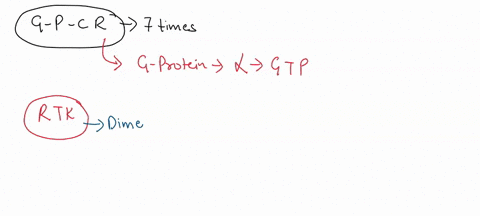 G-P-CR → 7 times
G-Protein → α → GTP
RTK → Dime